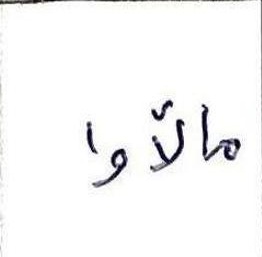 مالأوا